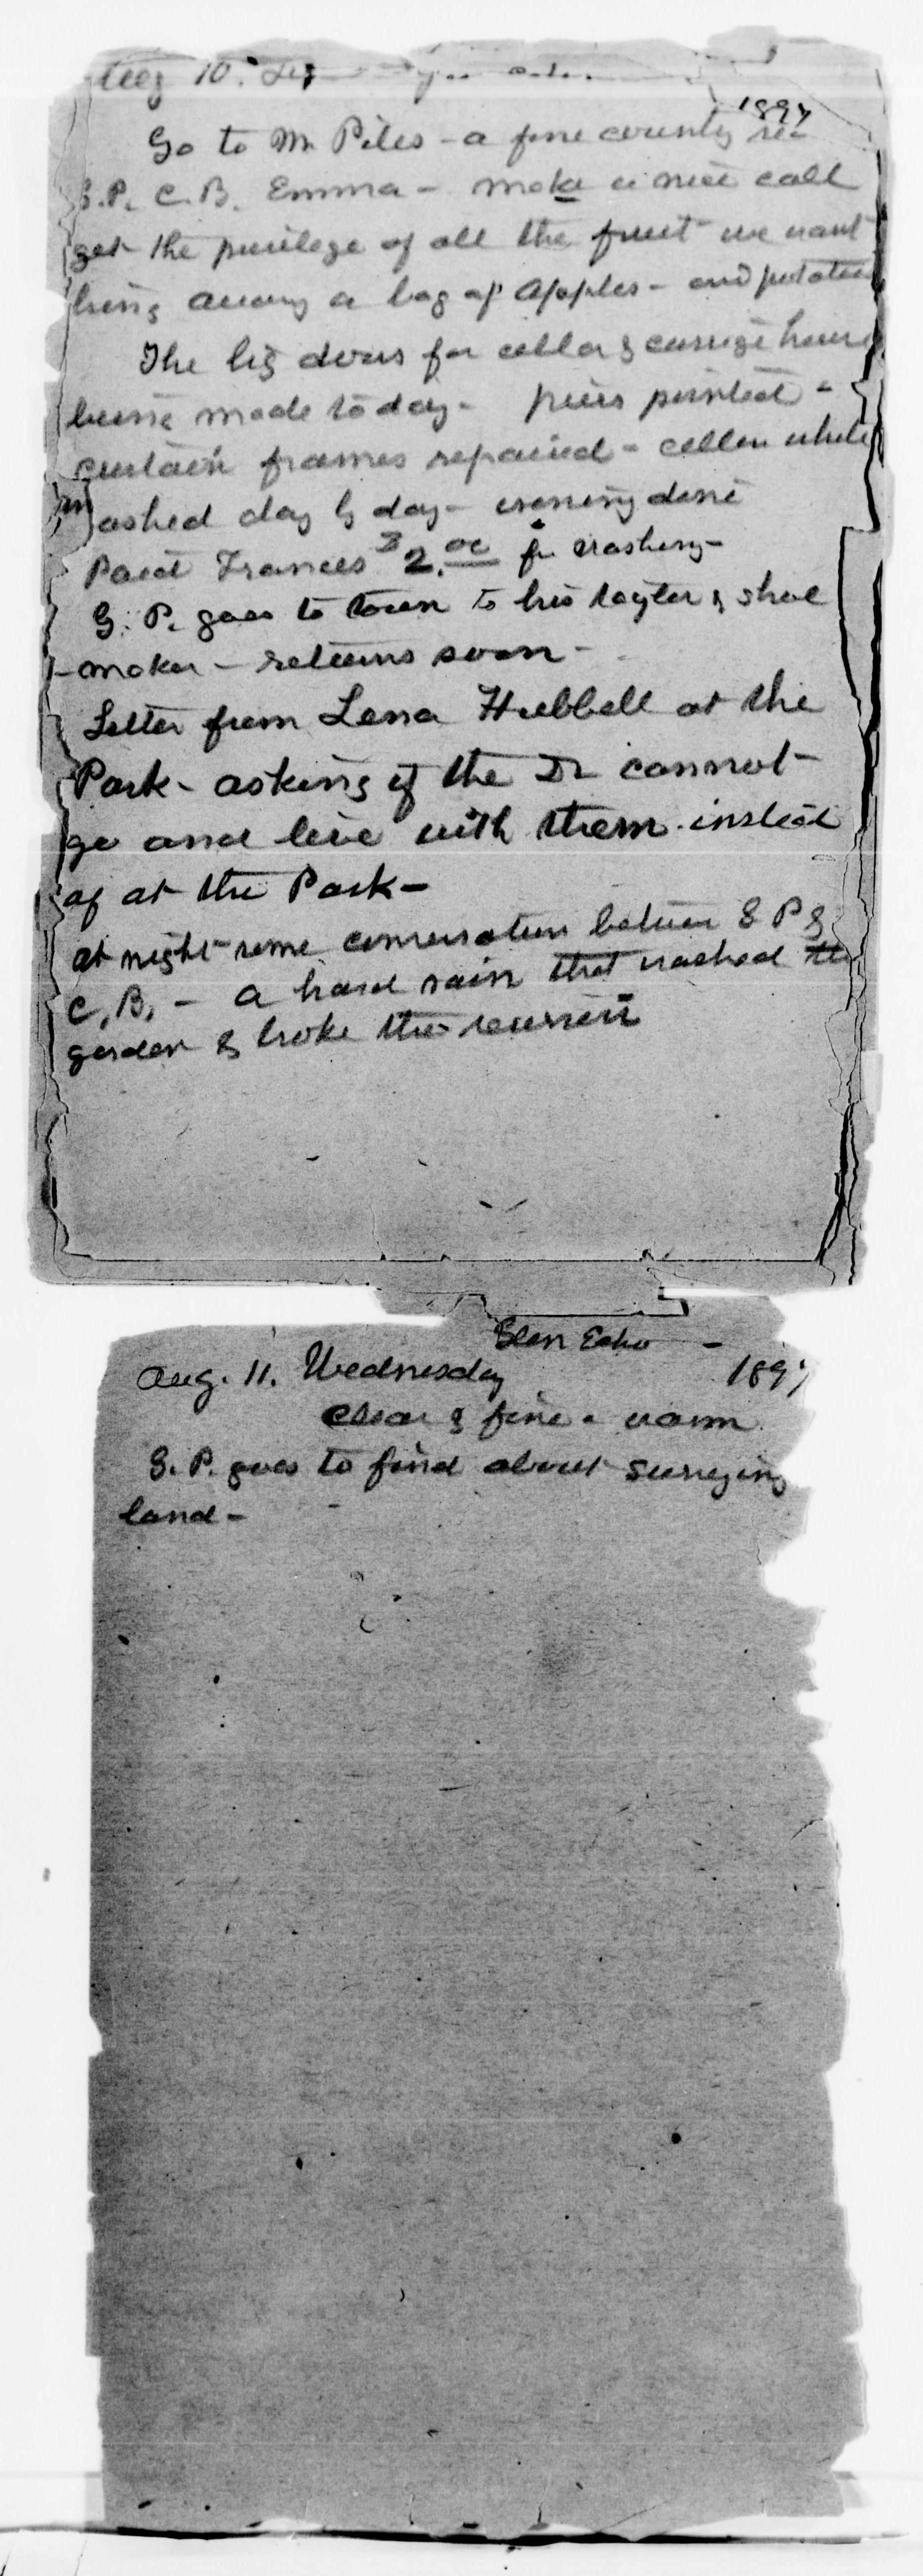 Aug 10.
1897
Go to Mr Piles - a fine county
G.P. C.B. Emma - make a nice call
get the privilege of all the fruit we want
bring away a bag of Apples - and potatoes
The big doors for cellar & carrige house
being made today - piers painted -
curtain frames repaired - cellar white
washed day by day - ironing done
Paid Frances $2.00 for washing -
G. P. goes to town to his taylor & shoe
- maker - returns soon -
Letter from Lena Hubbell at the
Park - asking if the Dr cannot
go and live with them instead
of at the Park -
at night some conversation between G P &
C, B, - a hard rain that washed the
garden & broke the
Glen Echo -
Aug. 11. Wednesday 1897
Clear & fine - warm
G. P. goes to find about surveying
land -